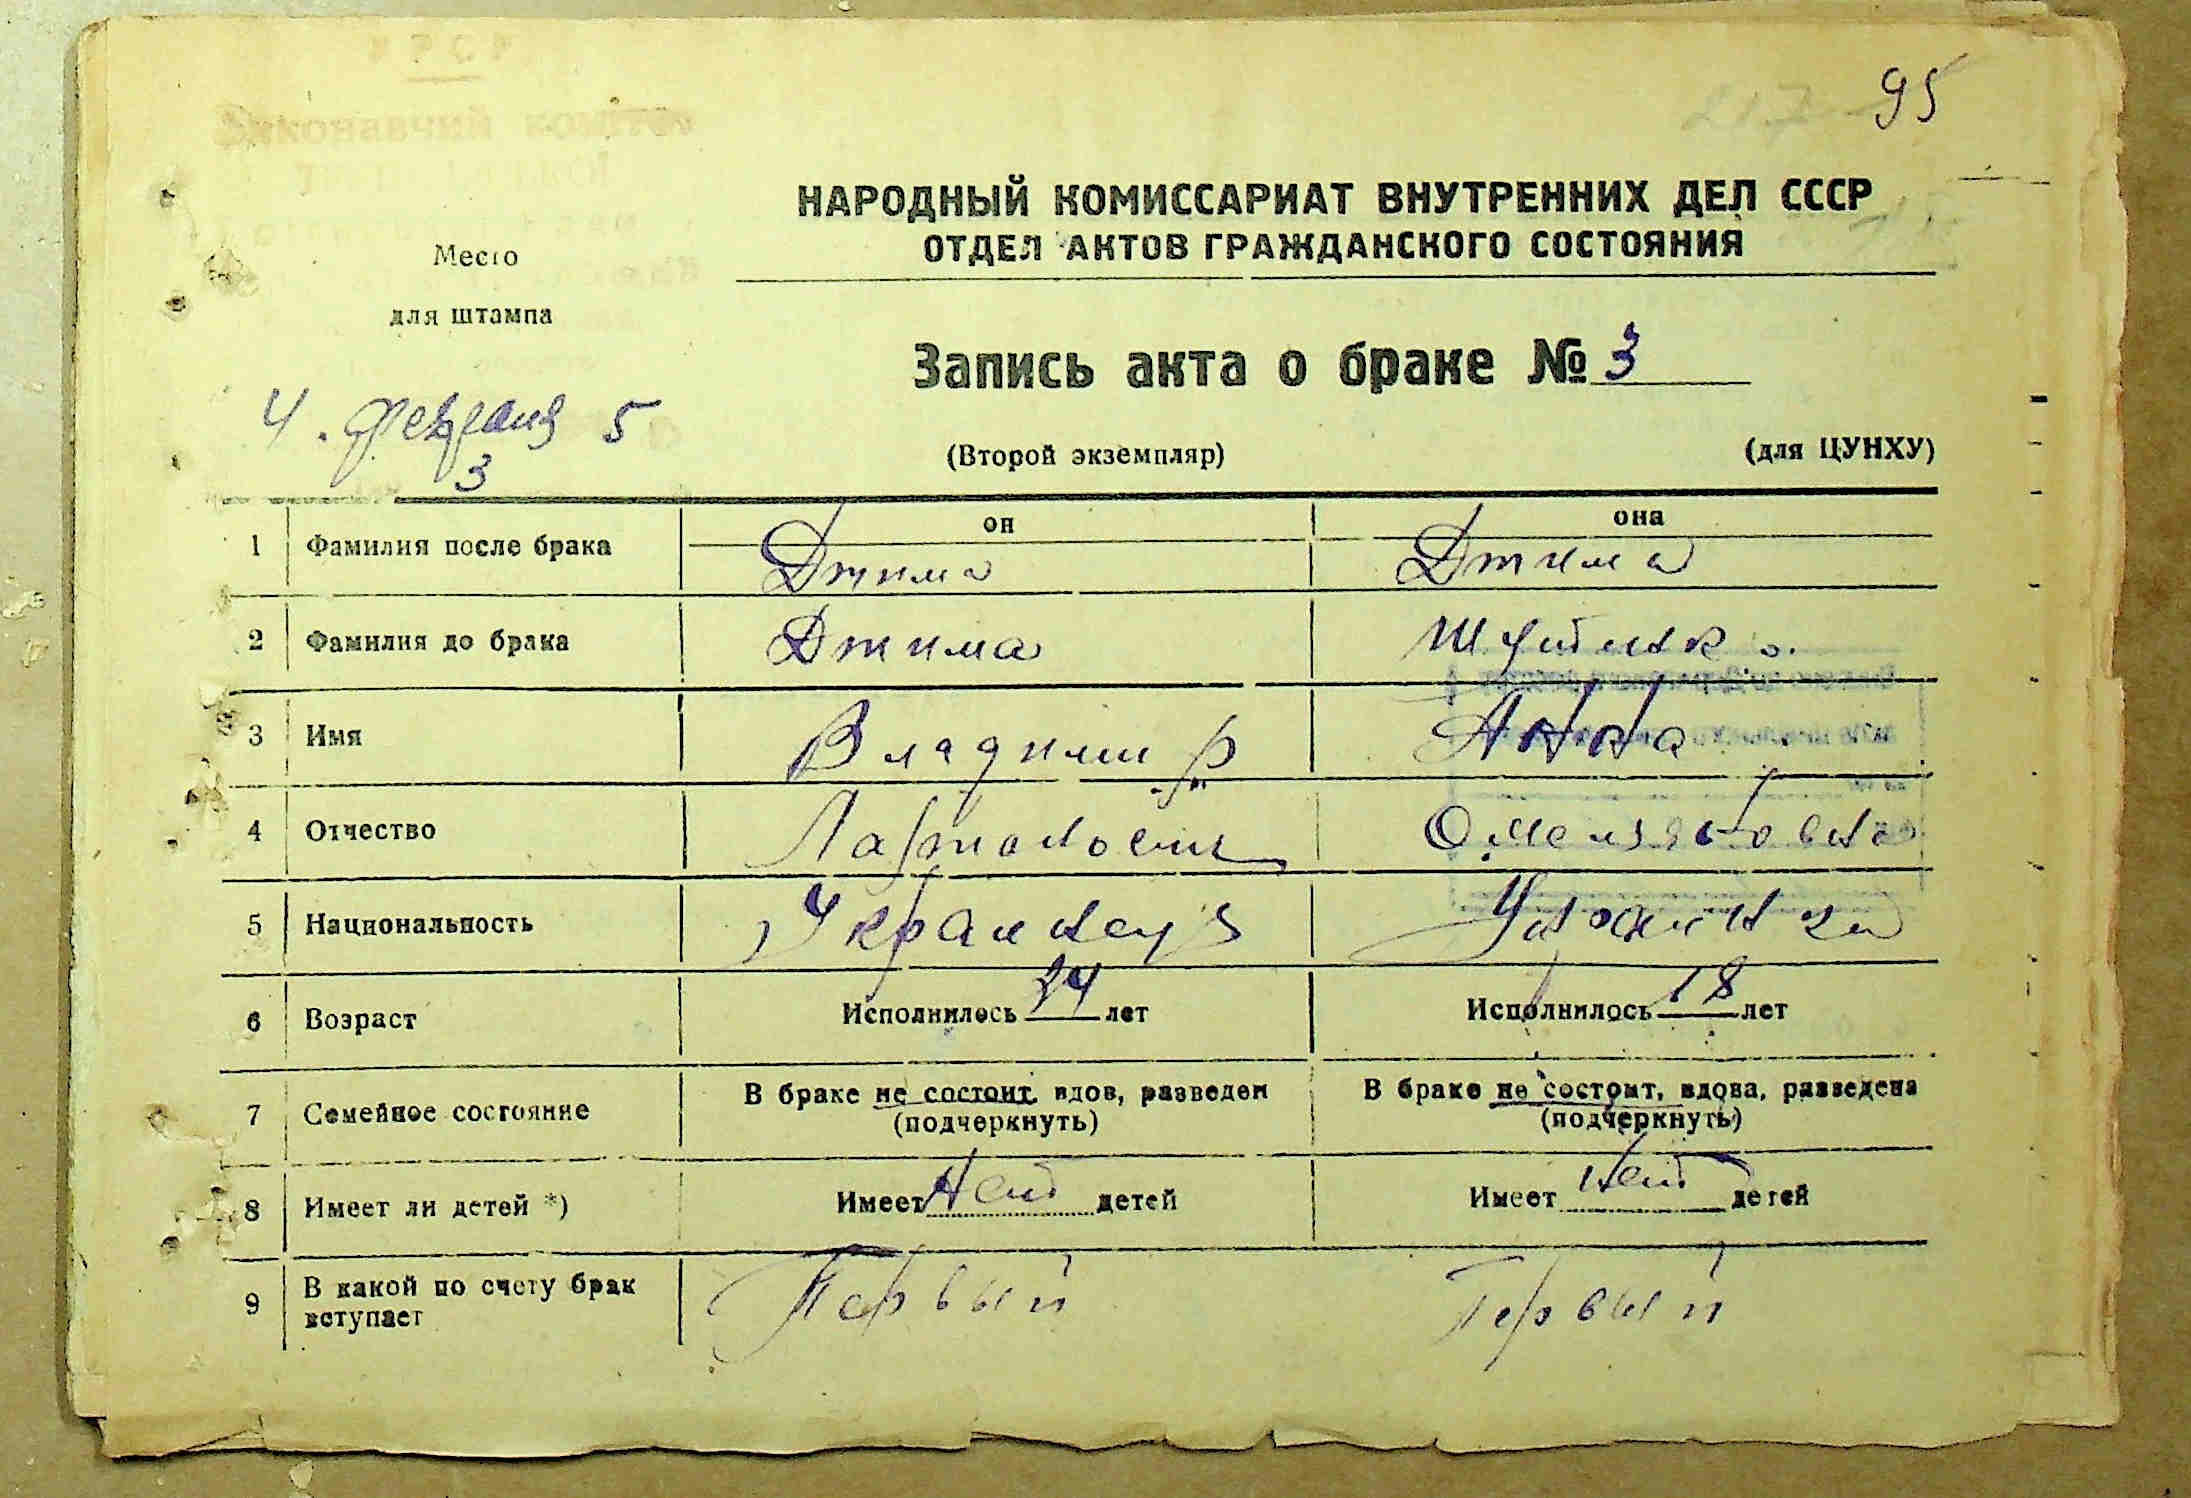 95
НАРОДНЫЙ КОМИССАРИАТ ВНУТРЕННИХ ДЕЛ СССР
ОТДЕЛ АКТОВ ГРАЖДАНСКОГО СОСТОЯНИЯ
Место
для штампа
Запись акта о браке № 3
4. февраля 5
3
(Второй экземпляр) (для ЦУНХУ)
он она
1 Фамилия после брака Джима Джима
2 Фамилия до брака Джима
3 Имя Владимир Анна
4 Отчество Омеляновна
5 Национальность Украинец Украинка
6 Возраст Исполнилось 24 лет Исполнилось 18 лет
7 Семейное состояние В браке не состоит, вдов, разведен (подчеркнуть) В браке не состоит, вдова, разведена (подчеркнуть)
8 Имеет ли детей *) Имеет Нет детей Имеет Нет детей
9 В какой по счету брак вступает Первый Первый